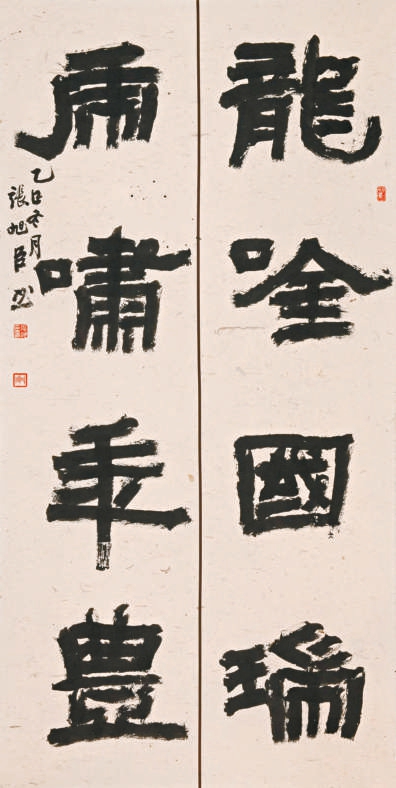 龍唫國瑞
虎嘯年豐
乙巳冬月
張旭臣